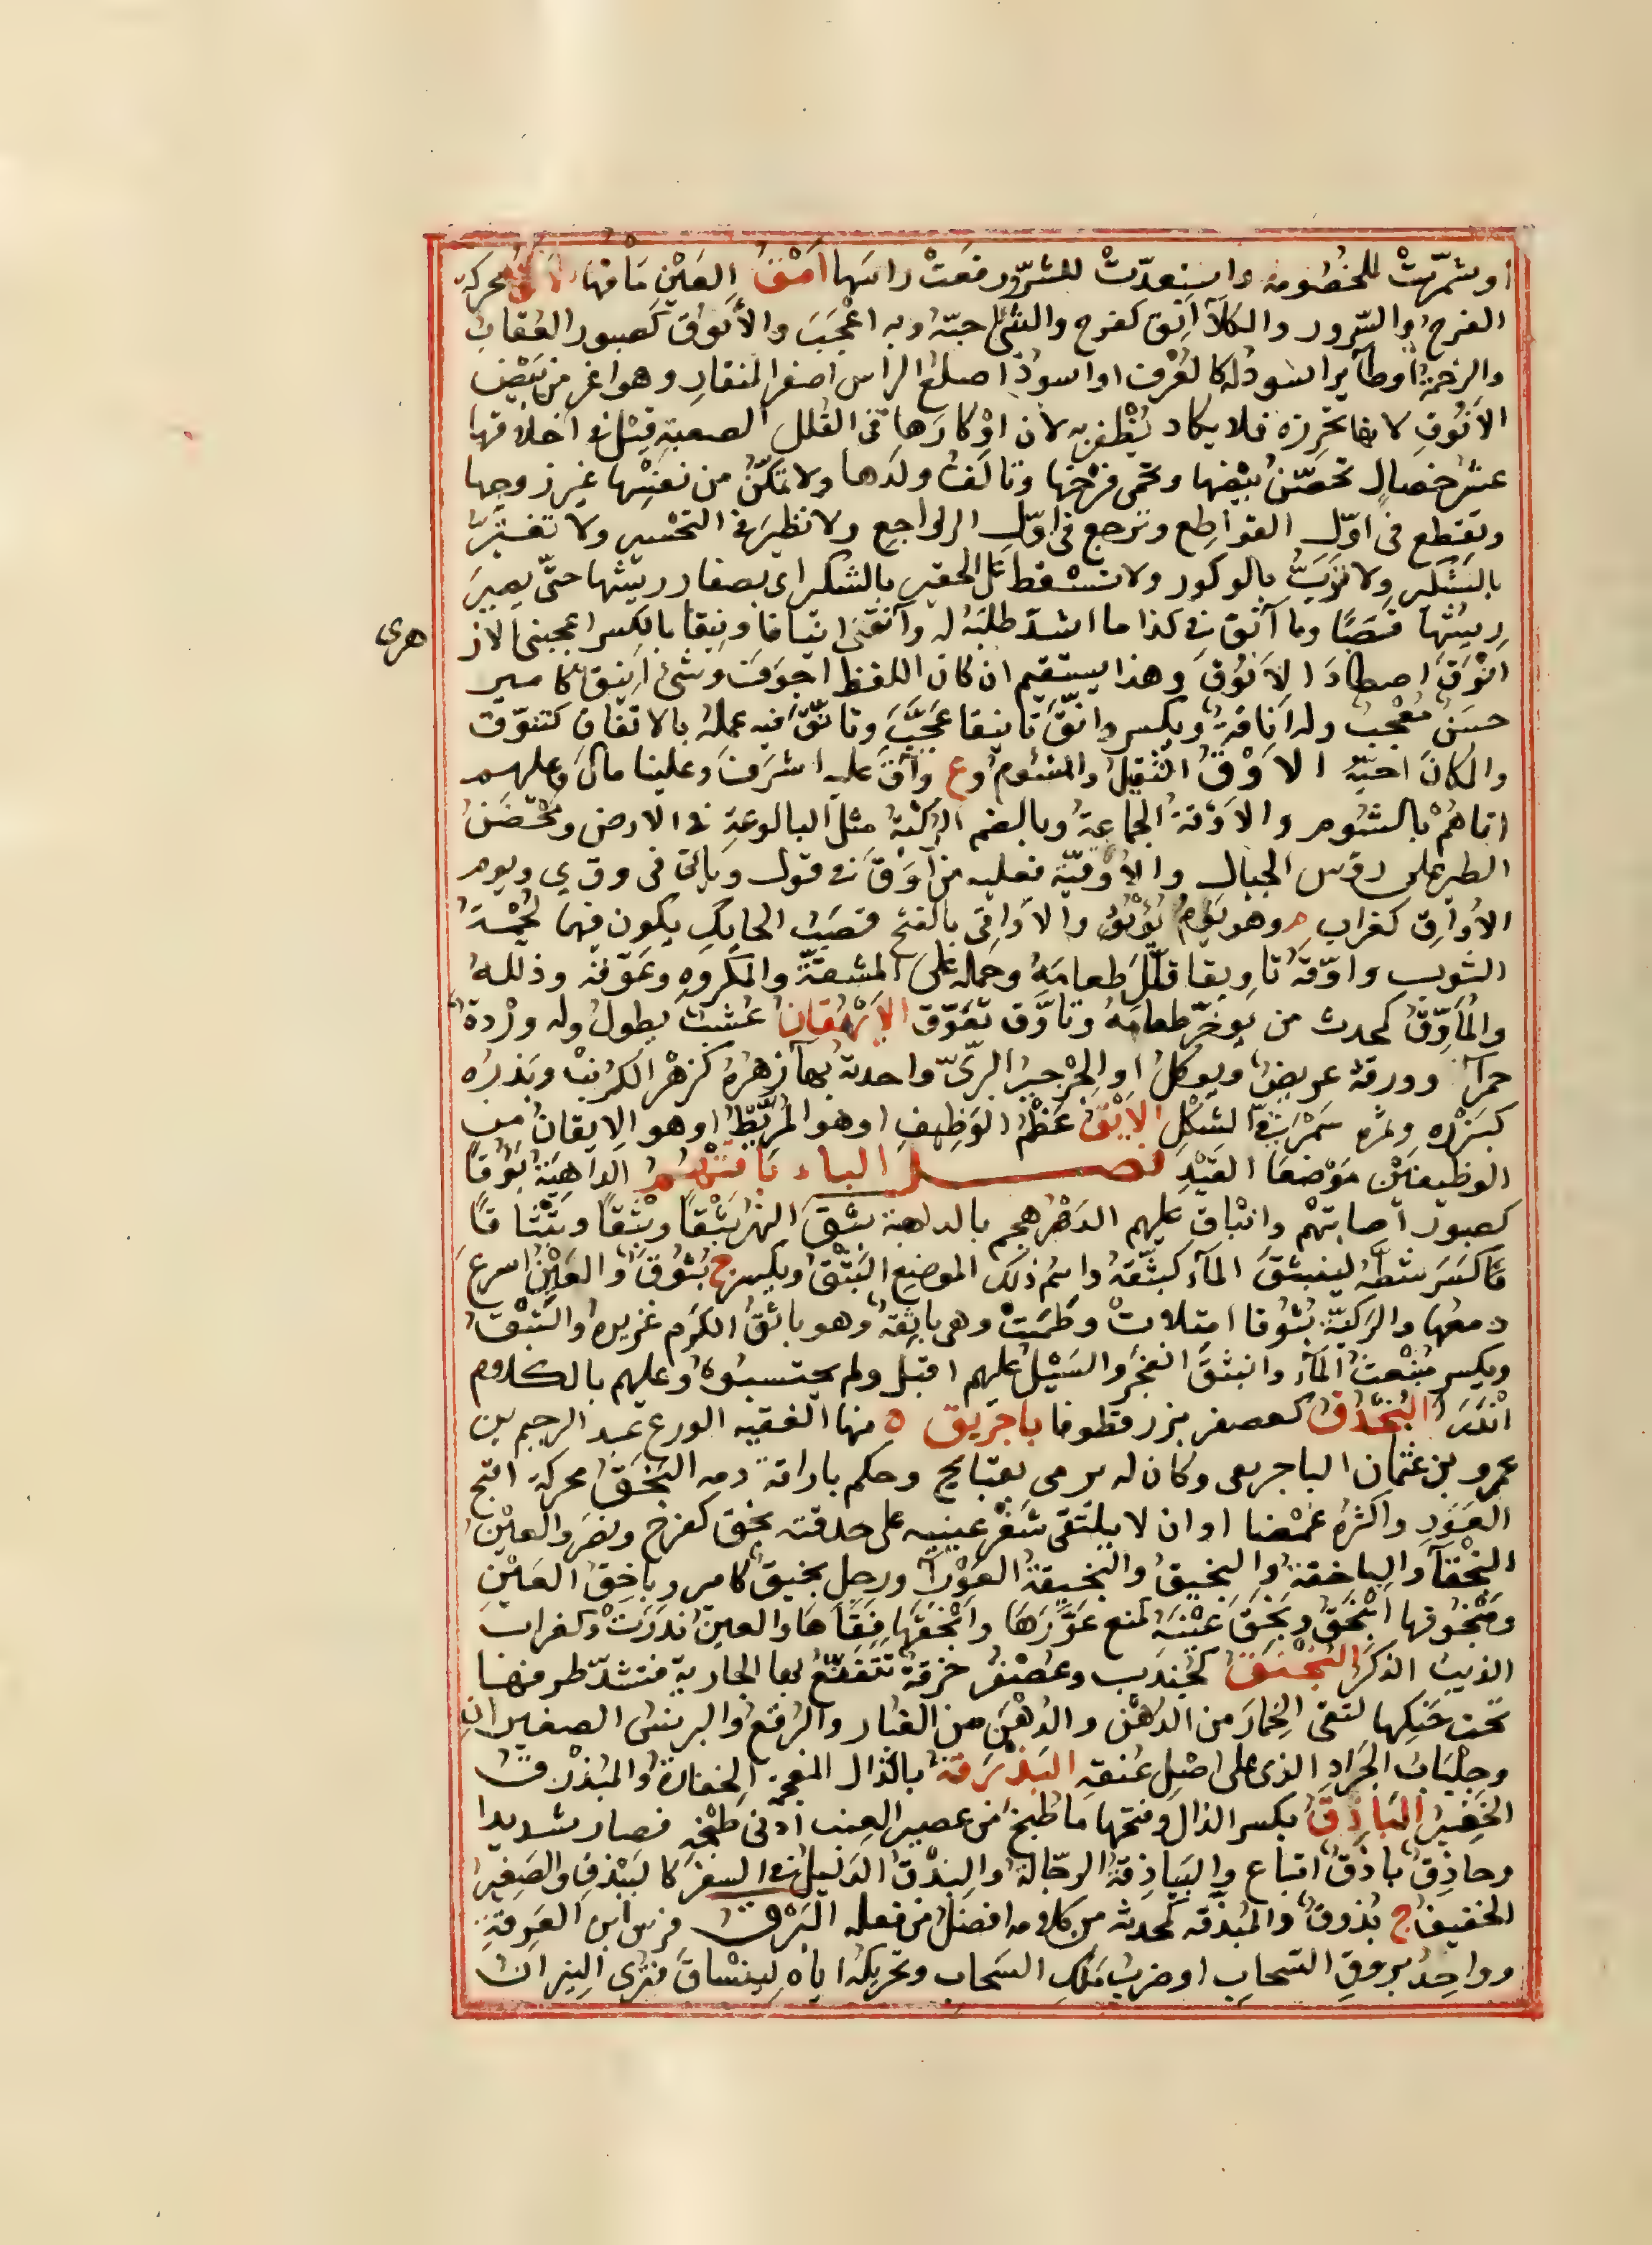 او شمّرتْ للخصومة واستعدّتْ للشرّ ورفعَتْ راسَها اَمَقُ العَيْنِ مَاقها الاَنَقُ محركةً
الفرحُ والسّرور والكلأ انِق كفرح والشئَ احبّهُ وبه اعْجَبَ والأَنوق كصبور العُقابُ
والرخمةُ او طآير اسْودُ له كالعُرْف او اسودُ اصلعُ الراس اصفر المنقار وهو اعز من بَيْض
الاَنُوقِ لانها تحرزه فلا يكاد يُظْفَر به لان اوْكارَها فى القُلل الصعبةِ قيْل فى اخلاقها
عشرُ خصال تحضّنُ بَيْضها وتحمى فرْخها وتالَفُ ولَدها ولا تمكّنُ من نفسِها غير زوجها
وتقطع فى اوّل القواطِع وترجع فى اوّل الرواجِع ولا تطير فى التحْسير ولا تغتَرّ
بالشَكير ولا تُرِبُّ بالوكور ولا تسْقط على الجفير بالشكر اى بصغار ريشها حتّى يصيرَ
رِيشها قصَبًا وما آنَق فى كذا ما اشدّ طلبَه له وآنَقنى انياقا ونيقا بالكسر اعجبنى الاز
هرى
انْوَقَ اصطاد الاَنُوقَ وهذا يستقيم ان كان اللفظ اجوَفَ وشئ انيق كامير
حسَنٌ مُعْجِبٌ وله اَناقةٌ ويكسر وانّقَ تانيقا عَجّبَ وتانّقَ فيه عملَه بالاتقان كتنوّق
والمكانَ احبّهُ الاَوْقُ الثّقِلُ والشُّوم وع وآقَ عليه اشرَفَ وعلينا مالَ وعليهم
اتاهُمْ بالشُّوم والاَوْقةُ الجماعةُ وبالضم الرَّكيّةُ مثل البالوعةِ فى الارض ومَحْضَنُ
الطير على رؤس الجبال والاُوقيّة فعلية من اَوَقَ فى قول وياتى فى وق ي ويوم
الاُوارِق كغراب م وهو يومُ يُؤيُؤ والاَواقى بالفتح قصَبُ الحايِكِ يكون فيها لُحْمَةُ
الثوب واوّقهُ تاويقا قلّل طعامَهُ وحمله على المشقّة والمكروهِ وعوّقه وذللهُ
والمُأَوِّقُ كمحدث من يوخّر طعامَهُ وتاوّق تعوّق الاَيْهُقانُ عُشْبٌ يطولُ وله ورْدةٌ
حمرآ وورقهُ عريضٌ ويوكلُ او الجِرْجيرُ البرّىّ واحدته بهآ زهرُهُ كزهر الكرنب وبَذرُه
كبزره وثمره سَرْمَقىّ الشكل الاَيْقُ عَظْمُ الوَظِيفِ او هو المُرَيَّطُ او هو الايقان من
الوظيفيْن موْضعَا القيْدِ فصـــل الباء باقَتْهُمُ الداهِيَةُ بَؤُوقًا
كصبور اصابتهْم وانباق عليهم الدَهْر هجم بالداهية بَثَق النهْرَ بَثْقًا وبِثْقًا وتَبْثاقًا
قا كسَر شطّهُ لينبثقَ المآء كبثّقهُ واسْم ذلك الموضِع البَثْقُ ويكسر ج بُثُوقٌ والعَيْن اسرعَ
دمعُها والرَكيّةُ بُثُوقا امتلاتْ وطَمَتْ وهى باثِقةٌ وهو باثقُ الكرَم غزيره والبَثْقُ
ويكسر مُنْبَعثُ المآء وانبثقَ انفجر والسَيْلُ عليهم اقبل ولم يحتسبُوهُ وعليهم بالكلام
انْدَرَا البُخْدُق كعصفر بزر قطونا باجريق ه منها الفقيه الورع عبد الرحيم بن
عمر بن عثمان الباجربقى وكان له يرمى بقبايح وحكم باراقة دمه البَخَقُ محركة اقبح
العَوَرِ واكثرهُ غمَصًا او ان لا يلتقى شَفْر عينيه على حدقته بخق كفرح ونصَر والعيْن
البَخْقآ والباخقةُ والبخيق والبَخيقةُ العَوْرآ ورجل بخيق كامير وباخِقُ العَيْنِ
ومَبْخُوقها ابْخَقُ وبَخَقَ عيْنَهُ كمنع عَوَّرَها وابْخَقَها فَقأها والعين نَدرَتْ وكغراب
الذيب الذكَر البُخْنُقُ كجُندب وعُصْفُر خرقةٌ تتَقنّعُ بها الجارية فتشدّ طرفيها
تحت حَنكِها لتقى الخِمار من الدهْن والدُهْنَ من الغبار والبُرقُع والبرنس الصغيران
وجِلْبَابُ الجَراد الذى على اصْل عُنقِه البَذْرَقةُ بالذال المعجمة الخفارةُ والمُبَذْرِقُ
الخفِيْرُ الباذِقُ بكسر الذال وفتحها ما طُبخَ من عصير العِنب ادنى طبْخِه فصار شديدا
وحاذِقٌ باذقٌ اتباع والبَياذِقةُ الرجّالةُ والبَذْقُ الدَليلُ فى السفر كالبَيْذقِ والصَغيرُ
الخفيف ج بُذُوقٌ والمُبَذِّقُ كمحدث من كلامه افضلُ من فعله البَرْقُ فرس ابن العَرِقةِ
وواحِدُ بروقِ السّحابِ او ضربُ ملَكِ السّحاب وتحريكُه اياه ليَنْساقَ فتُرى النِيران